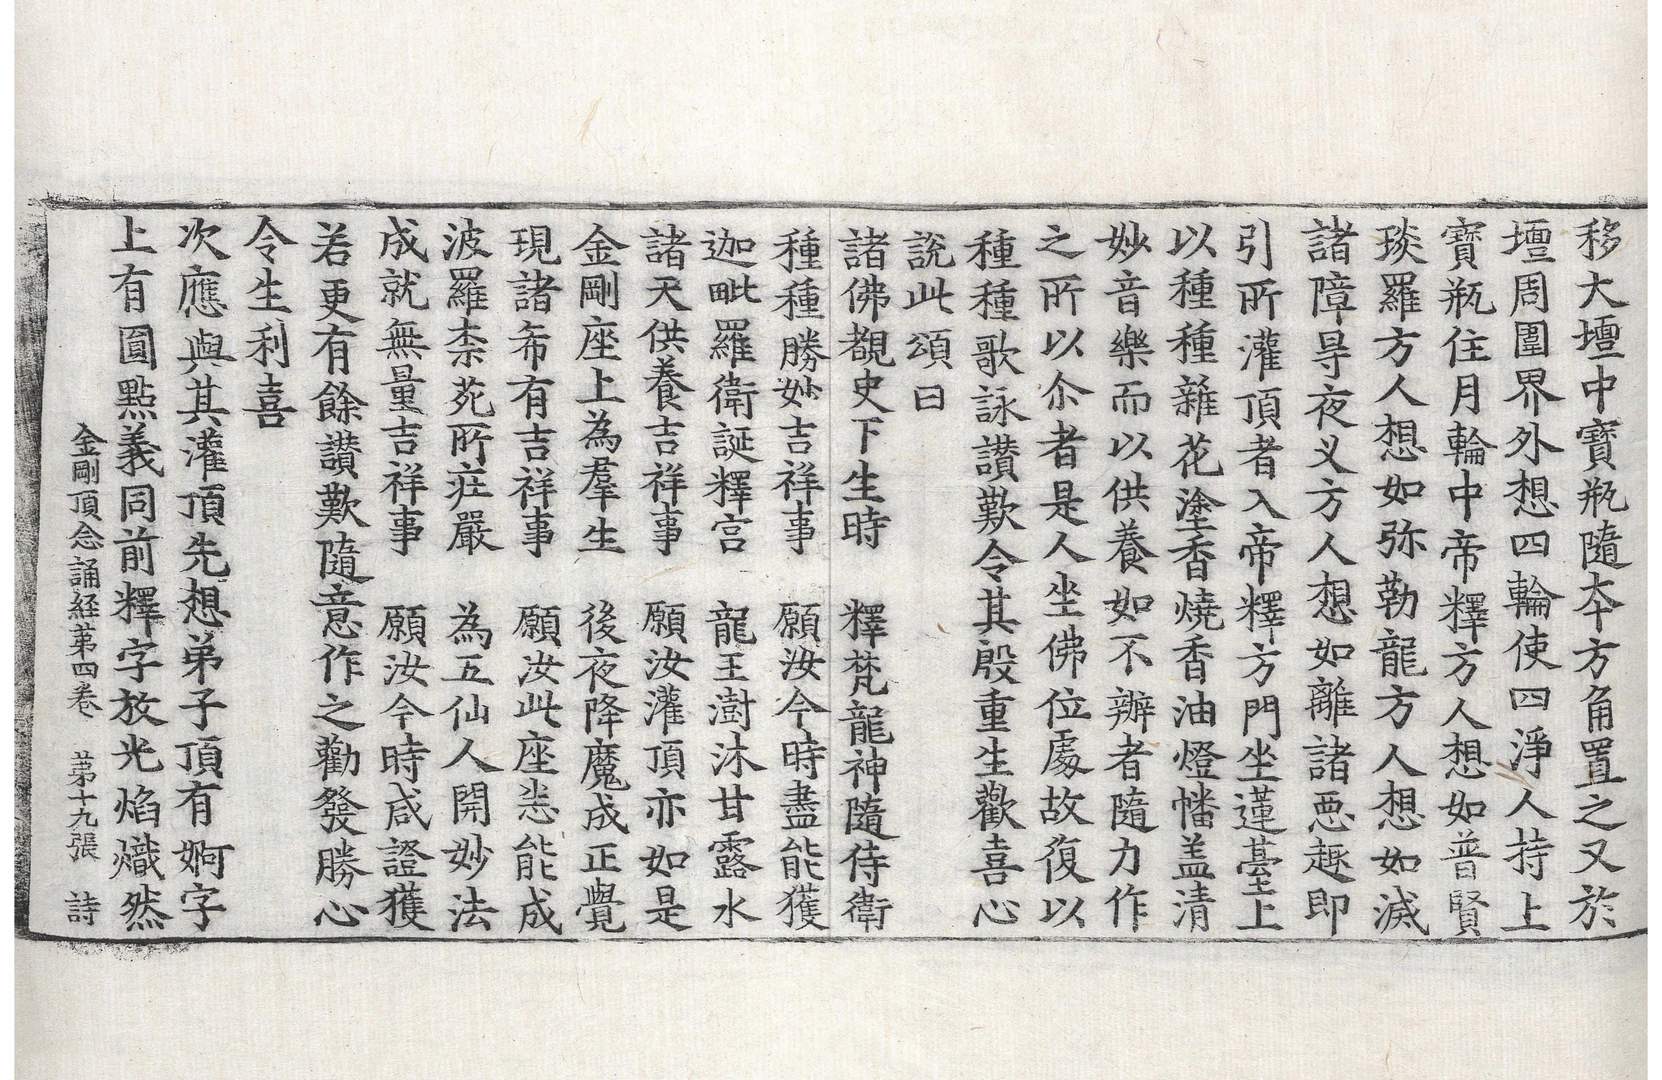 移大壇中寶瓶隨本方角置之又於
壇周圍界外想四輪使四淨人持上
寶瓶住月輪中帝釋方人想如普賢
琰羅方人想如弥勒龍方人想如滅
諸障㝵夜叉方人想如離諸惡趣即
引所灌頂者入帝釋方門坐蓮臺上
以種種雜花塗香燒香油燈幡盖清
妙音樂而以供養如不辦者隨力作
之所以尒者是人坐佛位處故復以
種種歌詠讃歎令其殷重生歡喜心
說此頌曰
諸佛覩史下生時　釋梵龍神隨侍衛
種種勝妙吉祥事　願汝今時盡能獲
迦毗羅衛誕釋宮　龍王澍沐甘露水
諸天供養吉祥事　願汝灌頂亦如是
金剛座上為羣生　後夜降魔成正覺
現諸希有吉祥事　願汝此座悉能成
波羅柰苑所莊嚴　為五仙人開妙法
成就無量吉祥事　願汝今時咸證獲
若更有餘讃歎隨意作之勸發勝心
令生利喜
次應與其灌頂先想弟子頂有婀字
上有圓點義同前釋字放光焰熾然
金剛頂念誦経第四卷　第十九張　詩